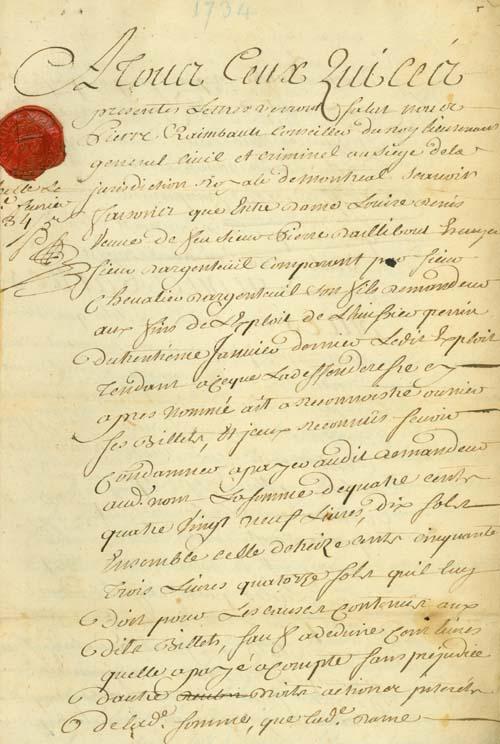 1734
A Tous Ceux Qui Ceés
presentes Lettres verront Salut nous
Pierre Raimbault Conseiller du roy lieutenant
general Civil et criminel au siege de la
jurisdiction royale de montreal sçavoir
faisons que Entre dame Louise denis
Veuve de feu sieur Pierre dailleboust
sieur dargenteuil comparant par sieur
Chevalier dargenteuil son fils demandeur
aux fins de L'Exploit de Lhuissier perrin
du trentiéme Janvier dernier Ledit Exploit
Tendant a ce que La deffenderesse cy
apres nommé ait a reconnoistre ou nier
ses Billets, Et yceux reconnus se voir
Condamner a payer audit demandeur
aud. nom La somme de quatre cents
quatre Vingt neuf Livres, dix sols
Ensemble celle de treize cents cinquante
Trois Livres quatorze sols quil luy
Doit pour Les causes Contenues aux
dits Billets, sauf a deduire Cent livres
quelle a payé a compte sans prejudice
d'autre droits actions interests
de lade. somme, que lade. dame